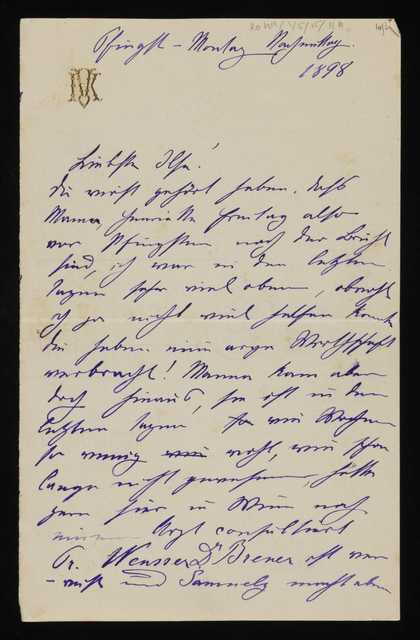 Pfingst-Montag Nachmittag.
1898
MK
Liebste Ilse!
Du wirst gehört haben, daß
Mama Henriette Freitag also
vor Pfingsten nach der Brühl
sind, ich war in den letzten
Tagen sehr viel oben, obwohl
ich ja nicht viel helfen konnte
Die haben eine arge Wirthschaft
verbracht! Mama kam aber
doch hinaus, sie ist in den
letzten Tagen so wie Wochen
so wenig wohl, wie schon
lange nicht gewesen, hätte
gern hier in Wien noch
einen Arzt consultirt
Pr. Neusser Dr Breuer ist ver-
-reist und Samuely macht eben